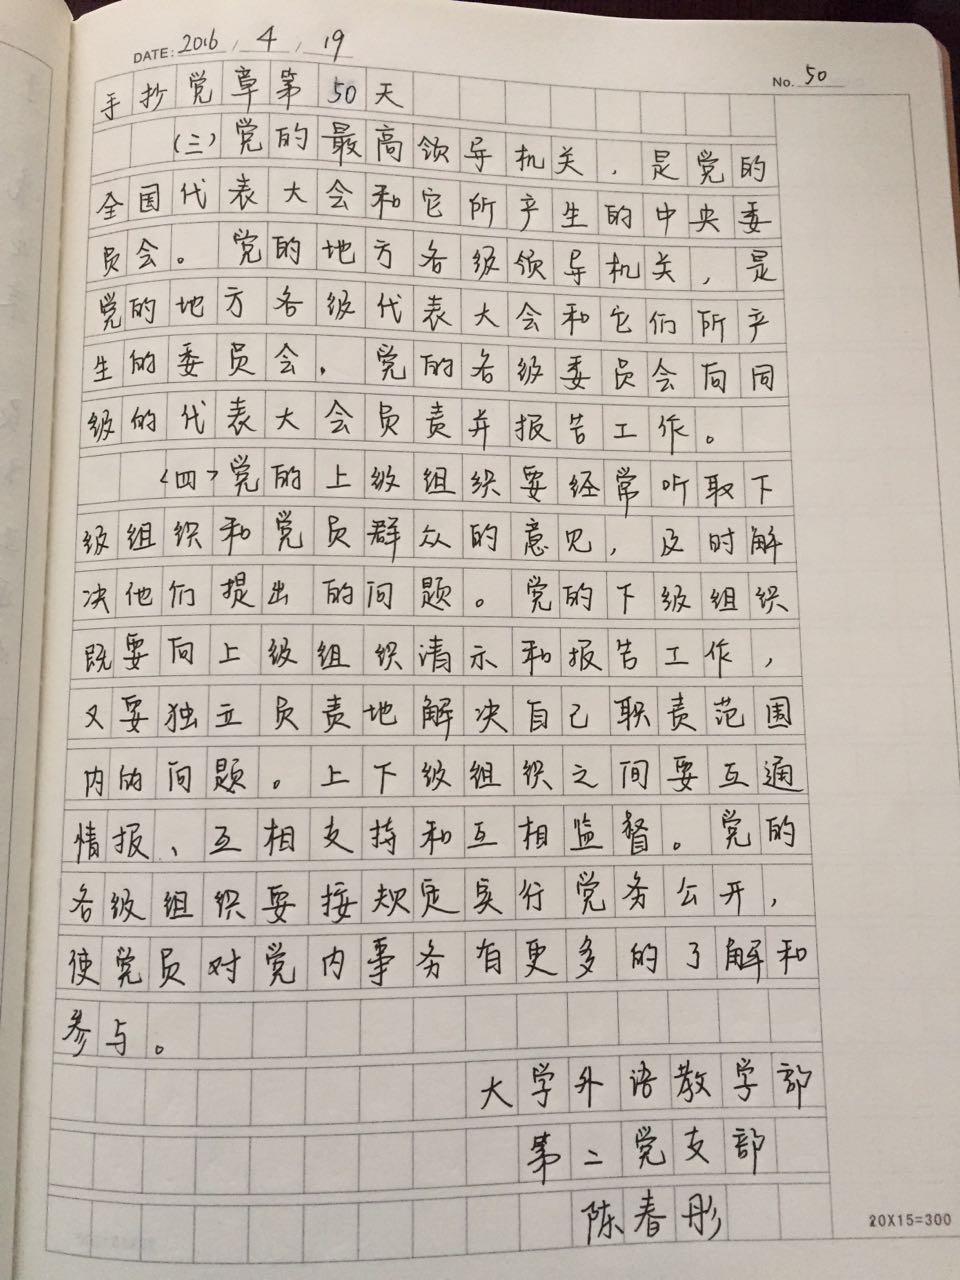 DATE: 2016 / 4 / 19
No. 50
手抄党章第50天
(三)党的最高领导机关,是党的
全国代表大会和它所产生的中央委
员会。党的地方各级领导机关,是
党的地方各级代表大会和它们所产
生的委员会。党的各级委员会向同
级的代表大会负责并报告工作。
(四)党的上级组织要经常听取下
级组织和党员群众的意见,及时解
决他们提出的问题。党的下级组织
既要向上级组织请示和报告工作,
又要独立负责地解决自己职责范围
内的问题。上下级组织之间要互通
情报、互相支持和互相监督。党的
各级组织要按规定实行党务公开,
使党员对党内事务有更多的了解和
参与。
大学外语教学部
第二党支部
陈春彤
20X15=300